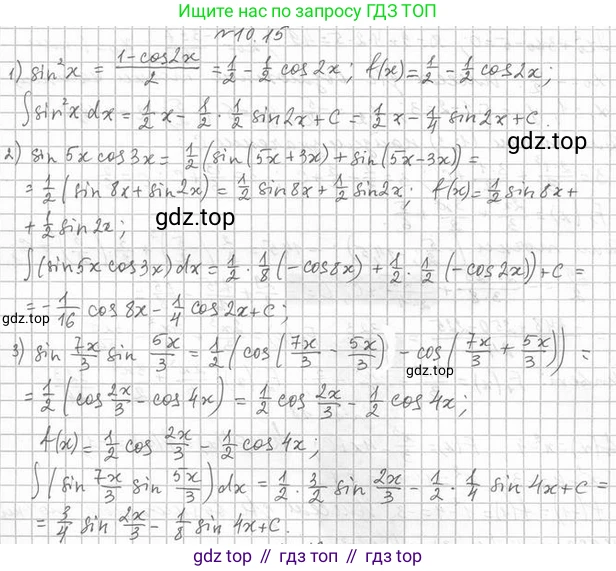 Ищите нас по запросу ГДЗ ТОП
№10.15
1) sin²x = (1-cos2x)/2 = 1/2 - 1/2 cos2x; f(x) = 1/2 - 1/2 cos2x;
∫sin²x dx = 1/2 x - 1/2 · 1/2 sin2x + C = 1/2 x - 1/4 sin2x + C.
2) sin 5x cos3x = 1/2 (sin(5x+3x) + sin(5x-3x)) =
gdz.top
= 1/2 (sin 8x + sin2x) = 1/2 sin8x + 1/2 sin2x; f(x) = 1/2 sin8x +
+ 1/2 sin2x;
gdz.top
∫(sin5x cos3x)dx = 1/2 · 1/8 (-cos8x) + 1/2 · 1/2 (-cos2x)) + C =
= -1/16 cos 8x - 1/4 cos 2x + C;
gdz.top
3) sin 7x/3 sin 5x/3 = 1/2 (cos(7x/3 - 5x/3) - cos(7x/3 + 5x/3)) =
gdz.top
= 1/2 (cos 2x/3 - cos 4x) = 1/2 cos 2x/3 - 1/2 cos 4x;
f(x) = 1/2 cos 2x/3 - 1/2 cos 4x;
gdz.top
∫(sin 7x/3 sin 5x/3)dx = 1/2 · 3/2 sin 2x/3 - 1/2 · 1/4 sin 4x + C =
= 3/4 sin 2x/3 - 1/8 sin 4x + C.
gdz.top // гдз.топ // gdz.top